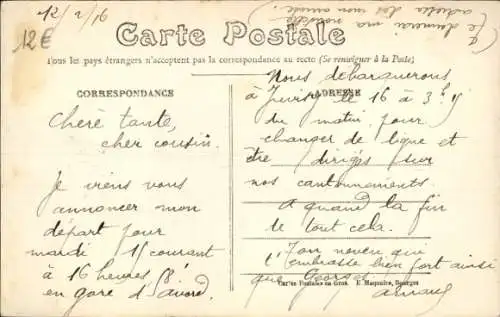 12/2/16
(Je donnerai ma nouvelle
adresse dès mon arrivée
12€
Carte Postale
Tous les pays étrangers n'acceptent pas la correspondance au recto (Se renseigner à la Poste)
CORRESPONDANCE
Chère tante,
cher cousin.
Je viens vous
annoncer mon
départ pour
mardi 15 courant
à 16 heures
en gare d'Avord.
ADRESSE
Nous débarquerons
à Juvisy le 16 à 3h
du matin pour
changer de ligne et
être dirigés sur
nos cantonnements.
A quand la fin
de tout cela.
Ton neveu qui
t'embrasse bien fort ainsi
que Georges
Cartes Postales en Gros. E. Maquaire, Bourges